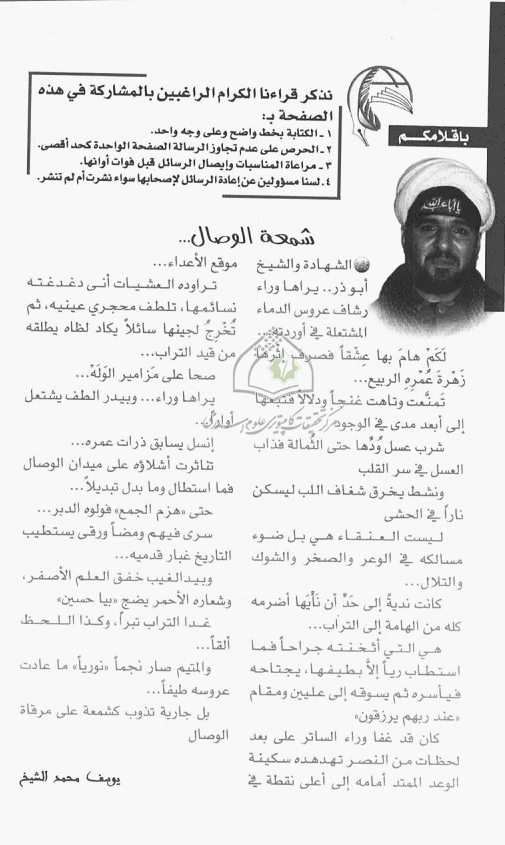 نذكر قراءنا الكرام الراغبين بالمشاركة في هذه
الصفحة بـ:
١ ـ الكتابة بخط واضح وعلى وجه واحد.
٢ ـ الحرص على عدم تجاوز الرسالة الصفحة الواحدة كحد أقصى.
٣ ـ مراعاة المناسبات وإيصال الرسائل قبل فوات أوانها.
٤ ـ لسنا مسؤولين عن إعادة الرسائل لإصحابها سواء نشرت أم لم تنشر.
باقلامكم
يا أباء الله
شمعة الوصال...
الشهادة والشيخ
أبو ذر.. يراها وراء
رشاف عروس الدماء
المشتعلة في أوردته...
لَكَمْ هامَ بها عشْقاً فصرف إثرها
زَهْرَةَ عُمْرِهِ الربيع...
تَمنَّعت وتاهت غنجاً ودلالاً فتبعها
إلى أبعد مدى في الوجود
شرب عسل وُدِّها حتى الثُمالة فذاب
العسل في سر القلب
ونشط يخرق شغاف اللب ليسكن
ناراً في الحشى
ليست العنقاء هي بل ضوء
مسالكه في الوعر والصخر والشوك
والتلال...
كانت نديةً إلى حَدِّ أن نَأْيَها أضرمه
كله من الهامة إلى التراب...
هي التي أثخنته جراحاً فما
استطاب رياً إلاَّ بطيفها، يجتاحه
فيأسره ثم يسوقه إلى عليين ومقام
«عند ربهم يرزقون»
كان قد غفا وراء الساتر على بعد
لحظات من النصر تهدهده سكينة
الوعد الممتد أمامه إلى أعلى نقطة في
موقع الأعداء...
تراوده العشيات أنى دغدغته
نسائمها، تلطف محجري عينيه، ثم
تُخْرِجُ لجينها سائلاً يكاد لظاه يطلقه
من قيد التراب...
صحا على مَزامير الوَلَهْ...
يراها وراء... وبيدر الطف يشتعل
أواراً...
إنسل يسابق ذرات عمره...
تناثرت أشلاؤه على ميدان الوصال
فما استطال وما بدل تبديلاً...
حتى «هزم الجمع» فولوه الدبر...
سرى فيهم ومضاً ورقى يستطيب
التاريخ غبار قدميه...
وبيد الغيب خفق العلم الأصفر،
وشعاره الأحمر يضج «بيا حسين»
غدا التراب تبراً، وكذا اللحظ
ألقاً...
والمتيم صار نجماً «نورياً» ما عادت
عروسه طيفاً...
بل جارية تذوب كشمعة على مرقاة
الوصال
يوسف محمد الشيخ